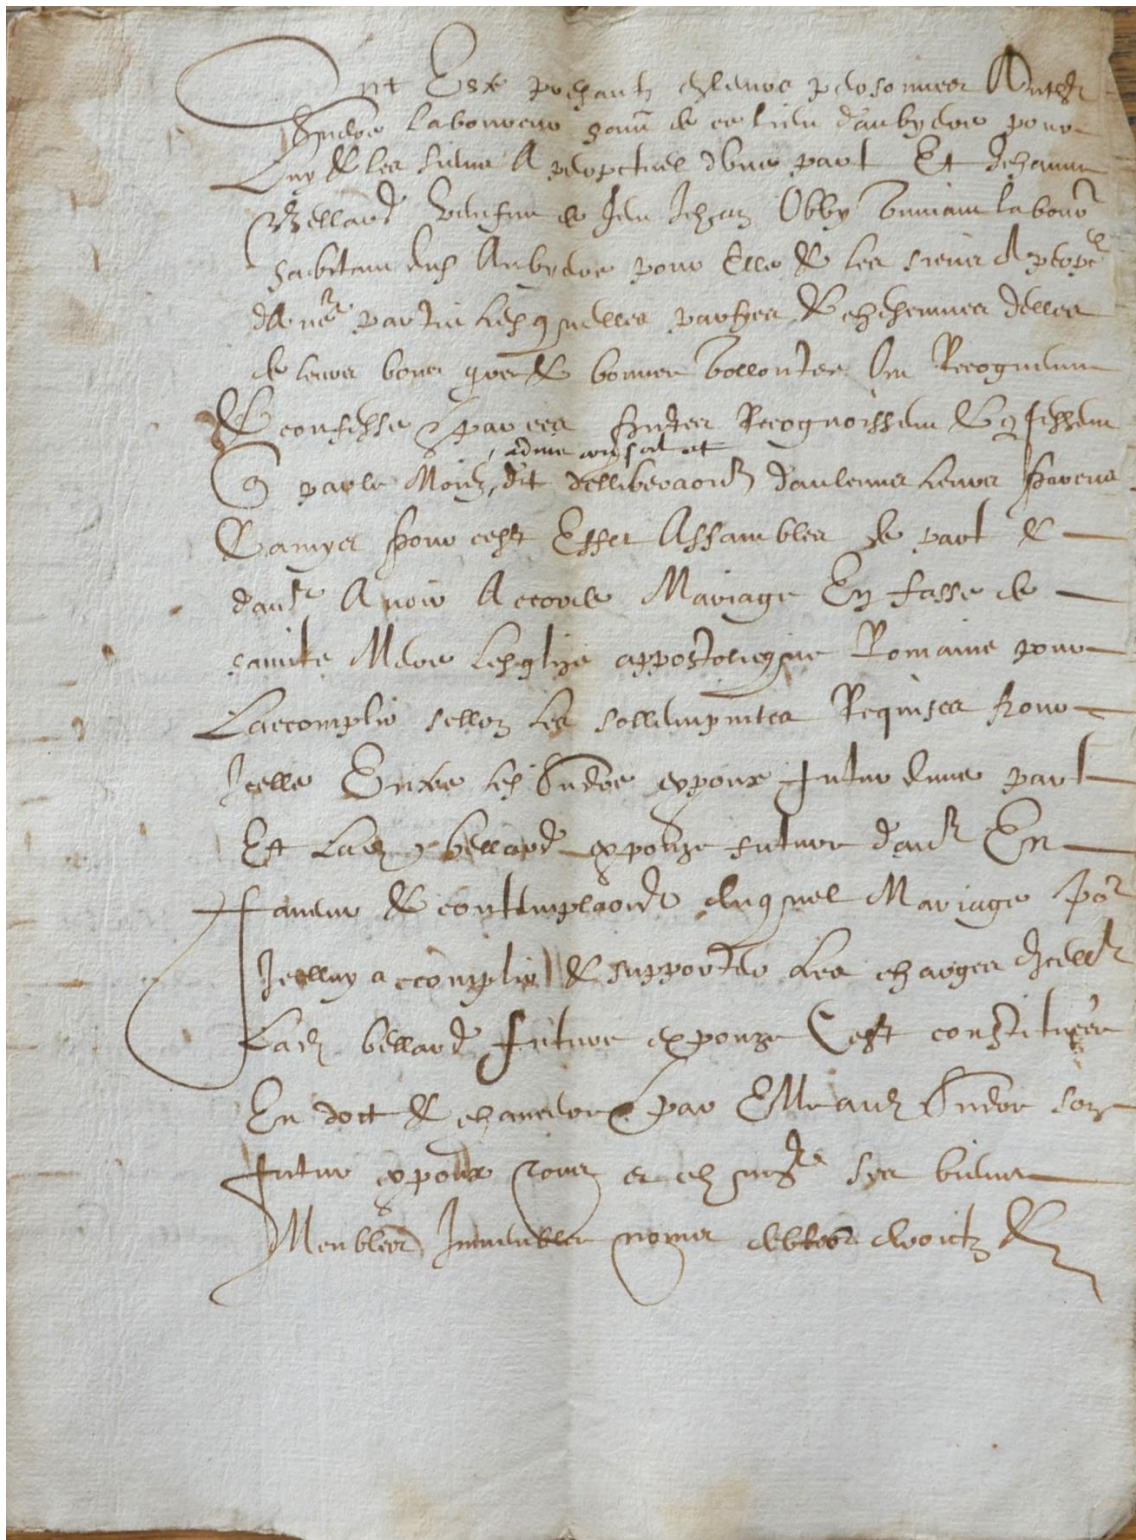 Ont Este presantz en leurs personnes Anthe
Sindre laboureur de ce lieu d'aubydre pour
Luy & les siens A perpetuel d'une part Et Jehanne
Bellard veufue de feu Jehan Obby viuiant labour
habitant dud Aubydre pour Elle & les siens A perpe
d'autre partie Lesquelles parties & chescunes d'elles
de leurs bons grez & bonnes vollontes Ont Recogneuez
& confesse & par ces sentes Recognoissent & confessent
par le Moien, dit & dellibera˜on d'aulcuns leurs parens
& amys pour cest Effet Assambles de part &
d'au˜ Auoir Accorde Mariage En fasse de
saincte Mere Lesglize appostolicque Romaine pour
L'accomplir sellon les sollempnites Requises pour
Icelle Entre led Sindre expoux futur d'une part
Et Lad bellard expouze future d'au˜ En
faueur & contempla˜on duquel Mariage Po˜
Icelluy accomplir & supporter Les charges d'icell˜
Lad bellard future expouze C'est constituee
En dott & chancere par Elle aud Sindre son
futur expoux tous & ch ses biens
Meubles Immeubles noms debtes droictz &